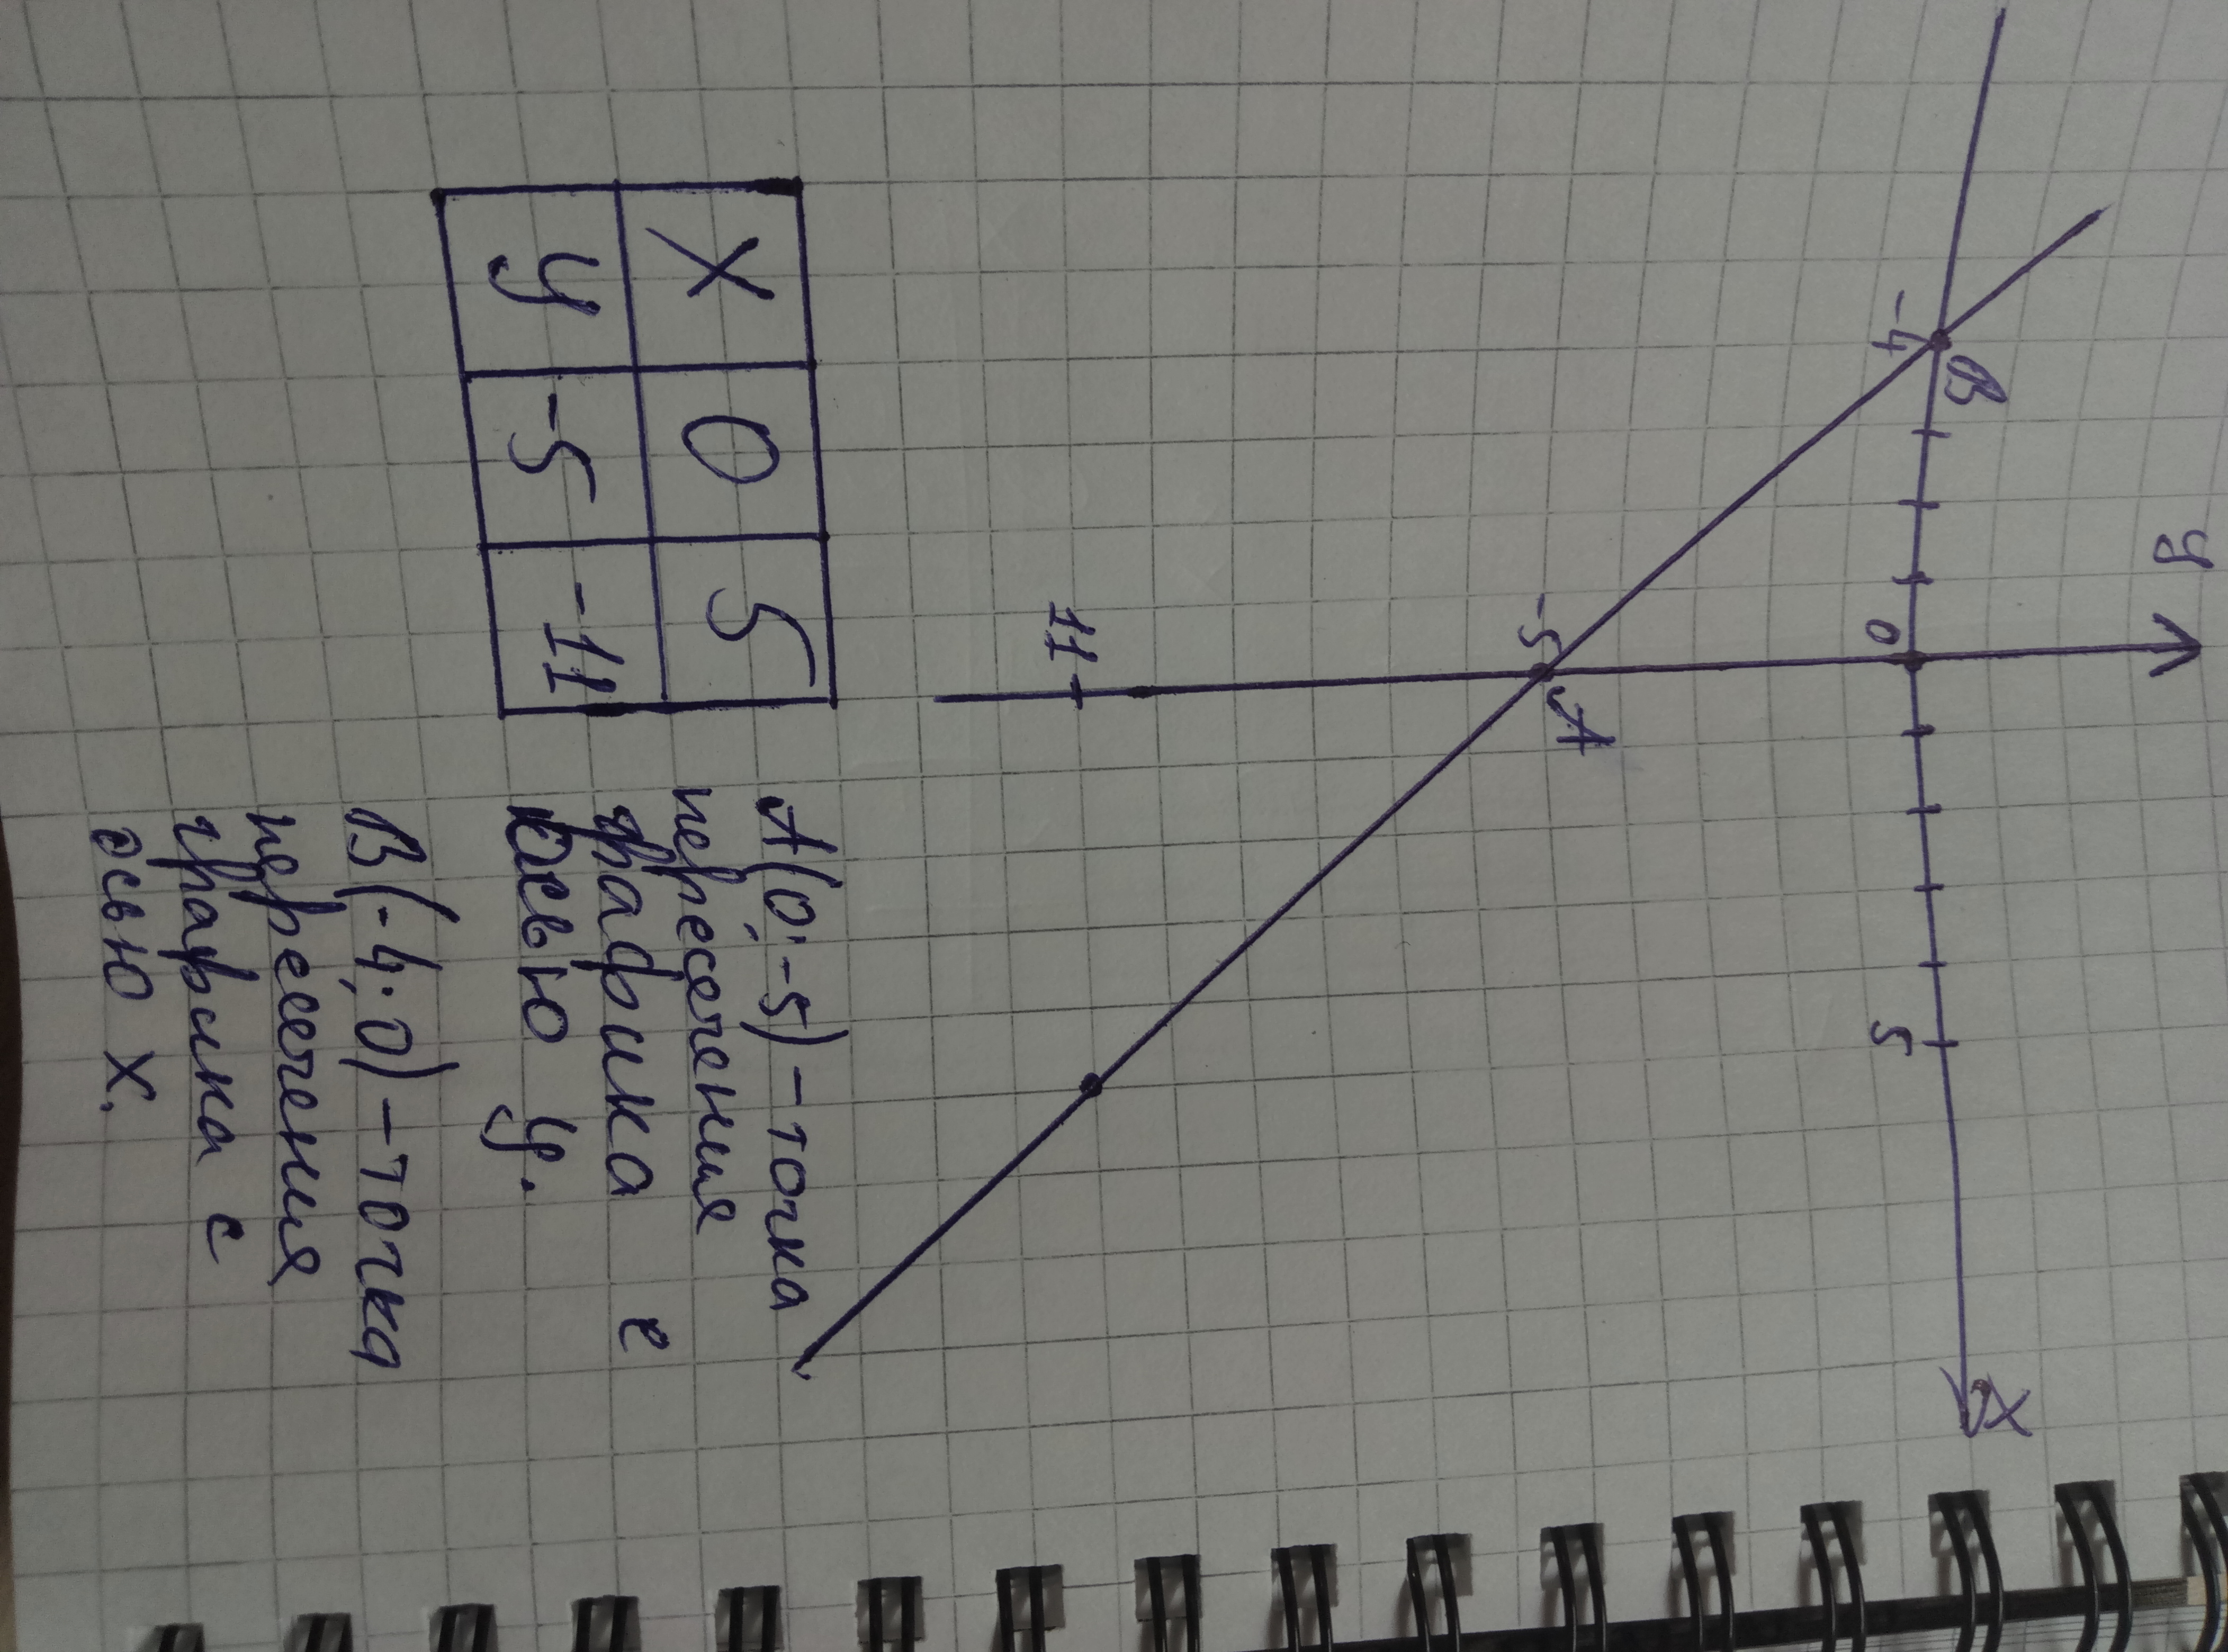 y
B
-4
0
5
x
-5
A
-11
x 0 5
y -5 -11
A(0;-5) - точка
пересечения
графика с
осью y.
B(-4;0) - точка
пересечения
графика с
осью x.